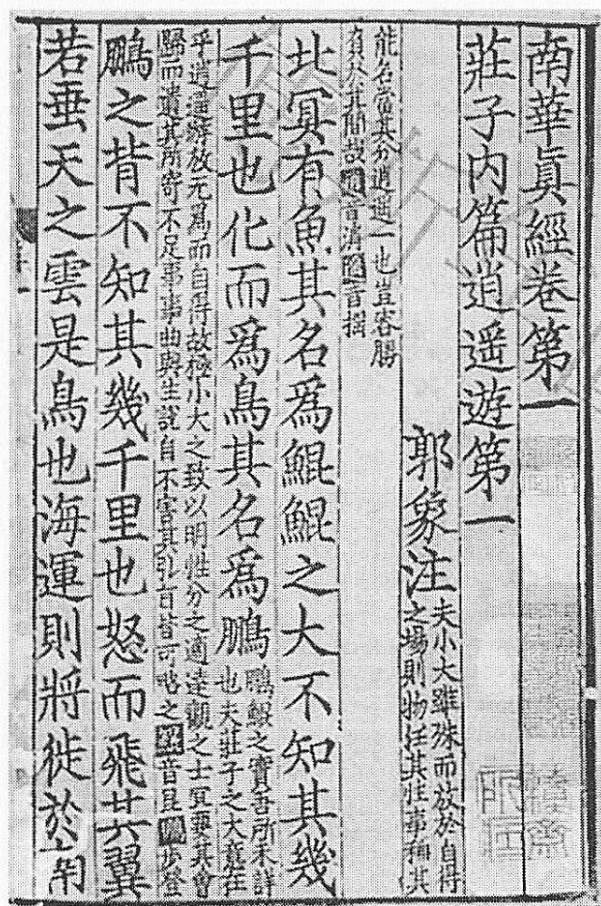 南華眞經卷第一
莊子內篇逍遥遊第一
郭象注
夫小大雖殊而放於自得
之場則物任其性事稱其
能各當其分逍遥一也豈容勝
負於其間哉音消音揺
北冥有魚其名爲鯤鯤之大不知其幾
千里也化而爲鳥其名爲鵬
鵬鯤之實吾所未詳
也夫莊子之大意在
乎逍遥遊放无爲而自得故極小大之致以明性分之適達觀之士宜要其會
歸而遺其所寄不足事事曲與生說自不害其弘旨皆可略之音昆步登
鵬之背不知其幾千里也怒而飛其翼
若垂天之雲是鳥也海運則將徙於南